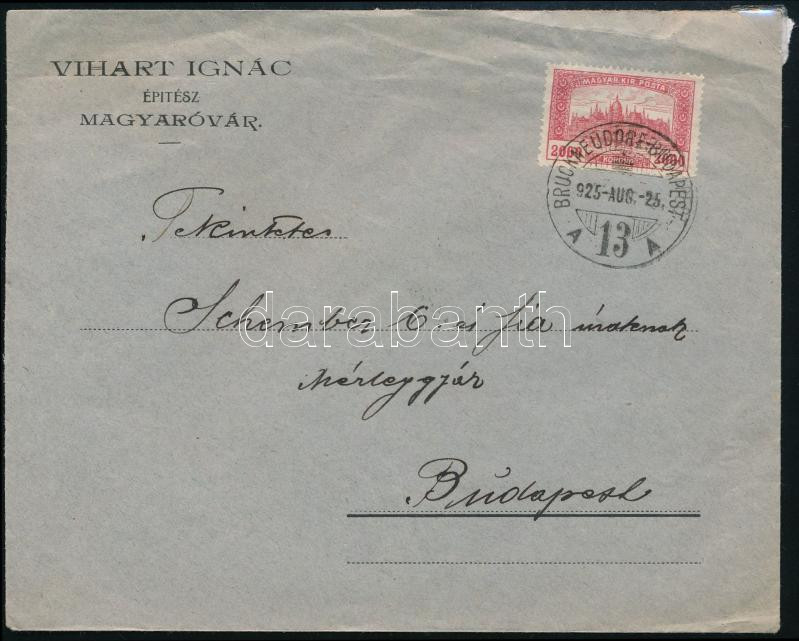 VIHART IGNÁC
ÉPITÉSZ
MAGYARÓVÁR.
MAGYAR KIR. POSTA
2000 KORONA 2000
BRUCKNEUDORF-BUDAPEST
925-AUG.-25.
A 13 A
Tekintetes
Schember C. és fia uraknak
Mérleggyár
Budapest
darabanth